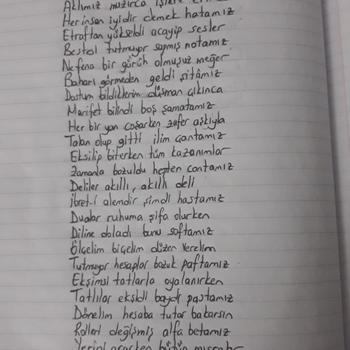 Aklımız muzırca işlere
Her insan iyidir demek hatamız
Etraftan yükseldi acayip sesler
Beste! tutmuyor sapmış notamız
Ne fena bir güruh olmuşuz meğer
Baharı görmeden geldi şitâmız
Dostum bildiklerim düşman çıkınca
Marifet bilindi boş şamatamız
Her bir yan coşarken zafer aşkıyla
Talan olup gitti ilim çantamız
Eksilip biterken tüm kazanımlar
Zamanla bozuldu hepten contamız
Deliler akıllı, akıllı deli
İbret-i alemdir şimdi hastamız
Dualar ruhuma şifa olurken
Diline doladı bunu softamız
Ölçelim biçelim düzen verelim
Tutmuyor hesaplar bozuk paftamız
Ekşimsi tatlarla oyalanırken
Tatlılar eksildi bayat pastamız
Dönelim hesaba tutar bakarsın
Rolleri değişmiş alfa betamız
Yerini ararken bütün